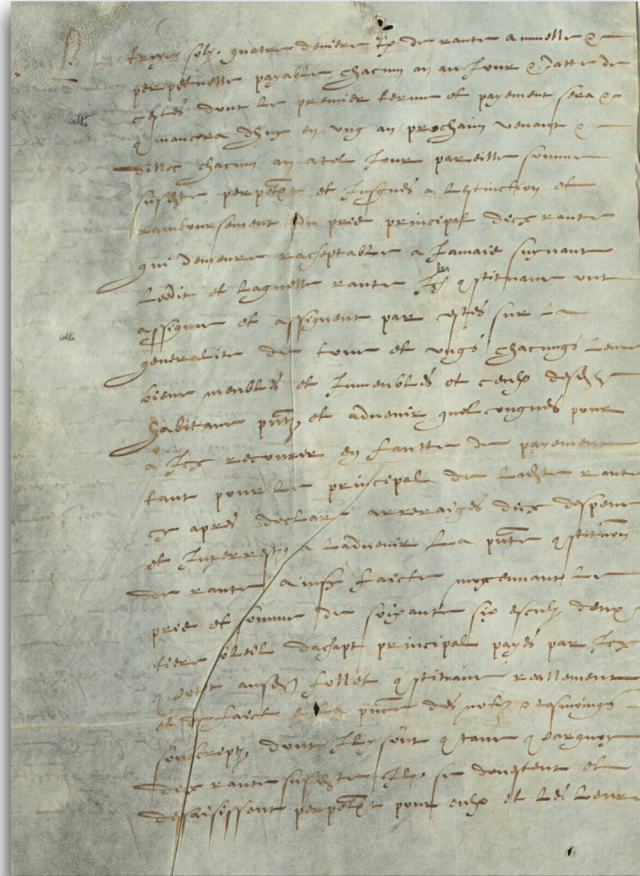 solz quatre deniers tz de rante annuelle &
perpetuelle payable chacun an au Jour & datte de
cestes dont le premier terme et payement sera &
commancera dhuy en ung an prochain venant &
dillec chacun an a tel Jour pareille somme
susdte perpett et Jusques a lextinction et
ramboursement du pris principal dicx rante
qui demeure rachaptable a Jamais suyvant
Ledit et laquelle rante les constituans ont
assigne et assignent par cestes sur la
generalite de tous et ungs chacungs leurs
biens meubles et Immeubles et ceulx desdz
habitans pntz et advenir quelconques pour
a Icx recourir en faulte de payement
tant pour le principal de ladte rante
cy apres declare arreraiges dicx despens
et Interrestz a ladvenir La pnte constituon
de rante ainsy faicte moyennant le
pris et somme de soixante six escuz deux
tiers dachapt principal payes par Icx
ausdz constituans reallement
et de faict en la pnce des notz & tesmoings
soubscriptz dont Ilz sont &
dicx rante susdte Ilz se devestent et
desaisissent perpett pour eulx et les leurs